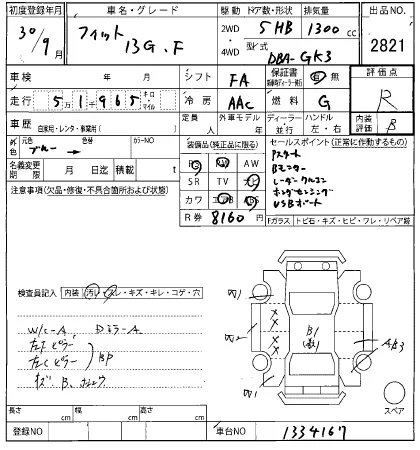 初度登録年月 車名・グレード 駆動 ドア数・形状 排気量 出品NO.
30/9月 フィット 13G.F 2WD・4WD 5HB 1300cc 2821
型式 DBA-GK3
車検 年 月 シフト FA 保証書 有 無 評価点 R
走行 5万1千965 キロ・マイル 冷房 AAC 燃料 G
車歴 自家用・レンタ・事業用( ) 定員 人 外車モデル 年 ディーラー・並行 ハンドル 左・右 内装 B
外色 元色 ブルー 色替 カラーNO
装備品(純正品に限る) セールスポイント(正常に作動するもの)
名義変更期限 月 日迄 積載 t
PS PW AW
SR TV ナビ
カワ エアB ABS
R券 8160円
Pスタート
Bモニター
レーダークルコン
ホンダセンシング
USBポート
注意事項(欠品・修復・不具合箇所および状態)
Fガラス トビ石・キズ・ヒビ・ワレ・リペア跡
検査員記入 内装 汚レ・スレ・キズ・キレ・コゲ・穴
W/C-A Dミラー-A
左Fピラー
左Cピラー BP
W1
W2
W1
A B3
スペア
長さ cm 幅 cm 高さ cm
登録NO 車台NO 1334167